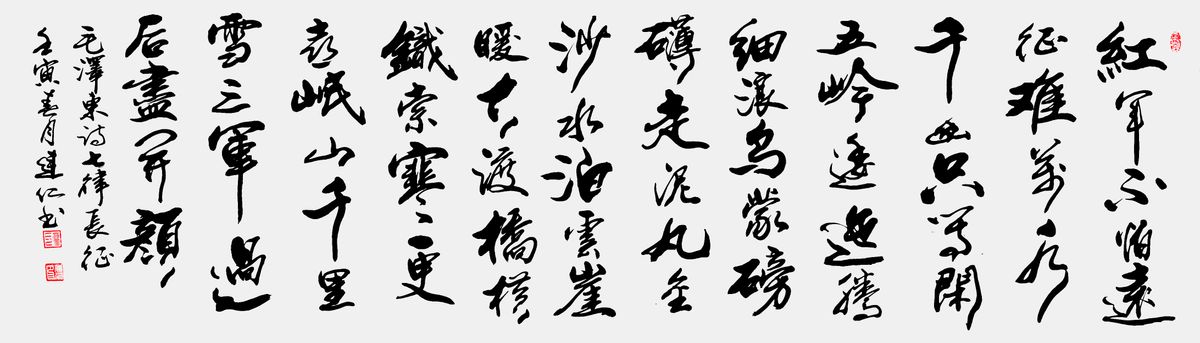 紅軍不怕遠
征難萬水
千山只等閑
五岭逶迤騰
細浪烏蒙磅
礴走泥丸金
沙水拍雲崖
暖大渡橋橫
鐵索寒更
喜岷山千里
雪三軍過
后盡開顏
毛澤東詩七律長征
壬寅春月仁書